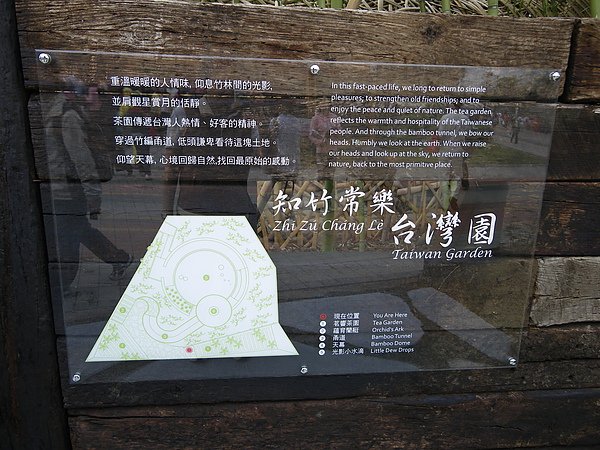 重溫暖暖的人情味,仰息竹林間的光影,
並肩觀星賞月的恬靜。
茶園傳遞台灣人熱情、好客的精神。
穿過竹編甬道,低頭謙卑看待這塊土地。
仰望天幕,心境回歸自然,找回最原始的感動。
In this fast-paced life, we long to return to simple
pleasures; to strengthen old friendships; and to
enjoy the peace and quiet of nature. The tea garden,
reflects the warmth and hospitality of the Taiwanese
people. And through the bamboo tunnel, we bow our
heads. Humbly we look at the earth. When we raise
our heads and look up at the sky, we return to
nature, back to the most primitive place.
知竹常樂
Zhi Zu Chang Le
台灣園
Taiwan Garden
現在位置 You Are Here
茗響茶園 Tea Garden
蘊育蘭組 Orchid's Ark
甬道 Bamboo Tunnel
天幕 Bamboo Dome
光影小水滴 Little Dew Drops